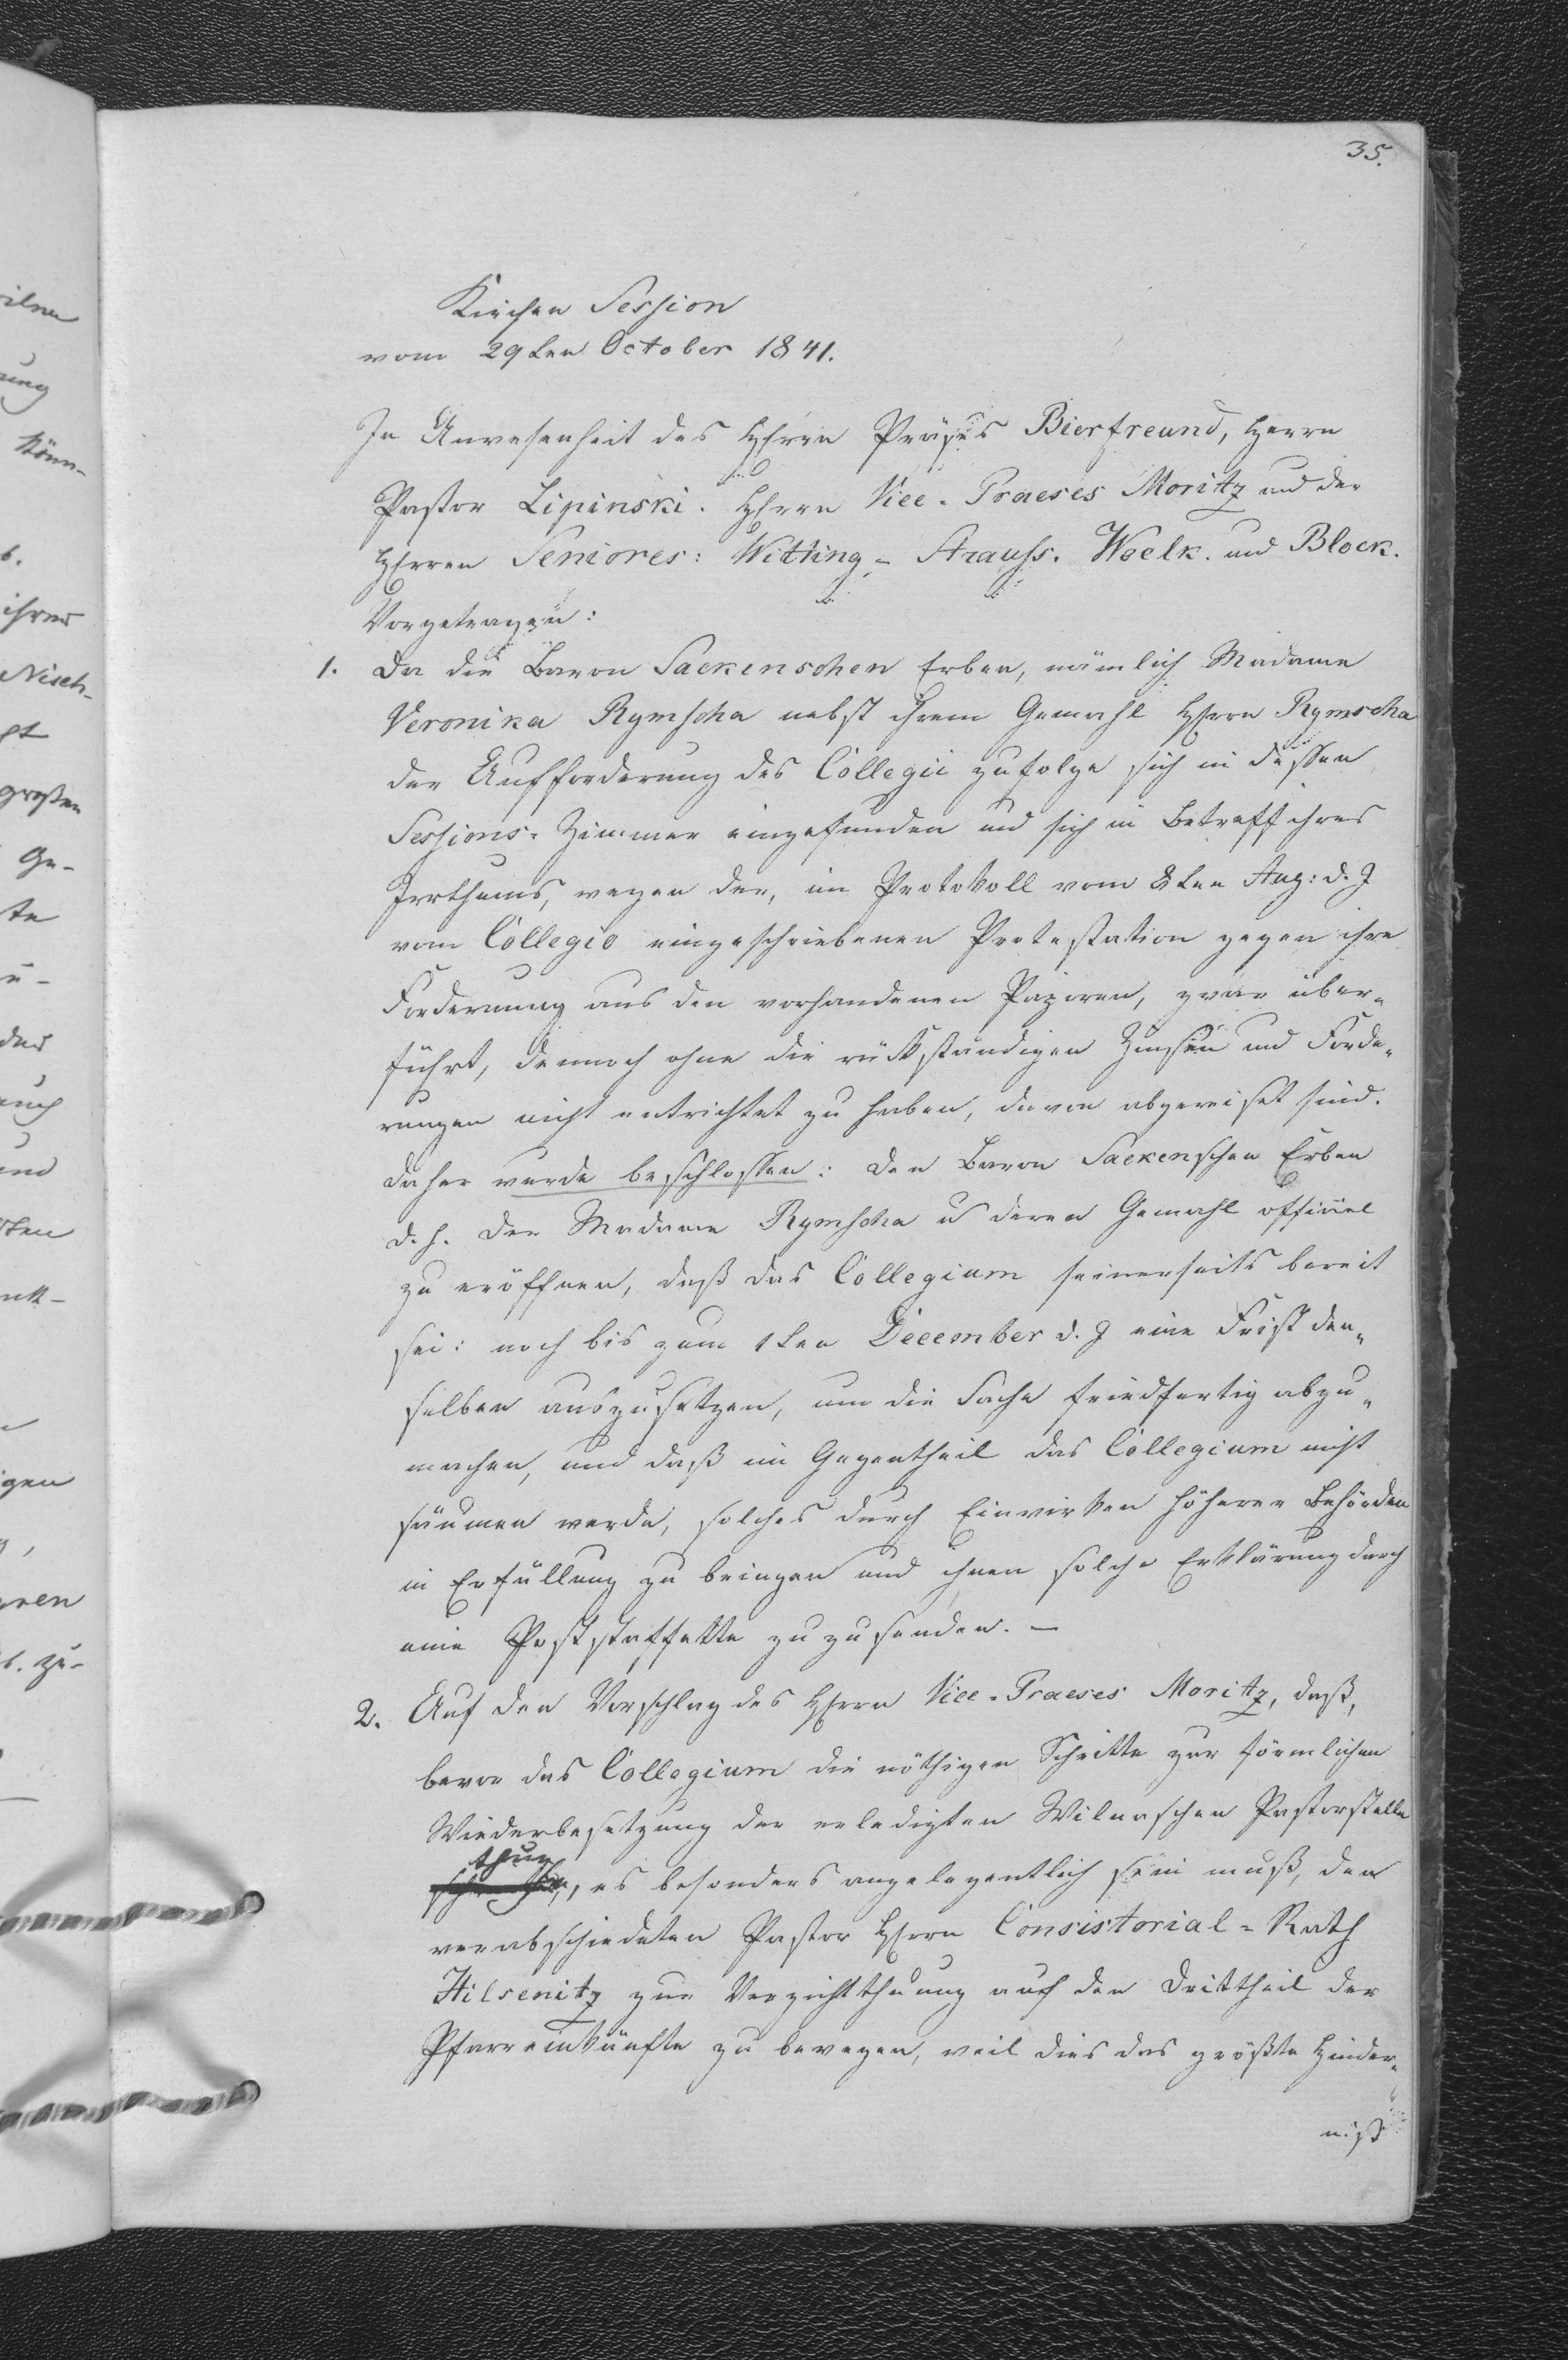 35.
Kirchen Session
vom 29ten October 1841.
In Anwesenheit des Herrn Präses Bierfreund, Herrn
Pastor Lipinski. Herrn Vice-Praeses Moritz und der
Herren Seniores: Witting - Strauss. Woelk. und Block.
Vorgetragen:
1. Da die Baron Sackenschen Erben, nämlich Madame
Veronika Rymscha nebst ihrem Gemahl Herrn Rymscha
der Aufforderung des Collegii zufolge sich in dessen
Sessions-Zimmer eingefunden und sich in Betreff ihres
Irrthums, wegen der, im Protokoll vom 8ten Aug: d. J
vom Collegio eingeschriebenen Protestation gegen ihre
Forderung aus den vorhandenen Papieren, zwar über-
führt, dennoch ohne die rückständigen Zinsen und Forde-
rungen nicht entrichtet zu haben, davon abgereiset sind.
daher wurde beschlossen: den Baron Sackenschen Erben
d. h. der Madame Rymscha u deren Gemahl officiel
zu eröffnen, daß das Collegium seinerseits bereit
sei: noch bis zum 1ten December d. J eine Frist den-
selben auszusetzen, um die Sache friedfertig abzu-
machen, und daß im Gegentheil das Collegium nicht
säumen werde, solches durch Einwirken höherer Behörden
in Erfüllung zu bringen und ihnen solche Erklärung durch
eine Poststaffette zuzusenden. —
2. Auf den Vorschlag des Herrn Vice-Praeses Moritz, daß,
bevor das Collegium die nöthigen Schritte zur förmlichen
Wiederbesetzung der erledigten Wilnaschen Pastorstelle
thue, es besonders angelegentlich sein muß, den
verabschiedeten Pastor Herrn Consistorial-Rath
Hilsenitz zur Verzichtthuung auf den Drittheil der
Pfarreinkünfte zu bewegen, weil dies das größte Hinder-
niß